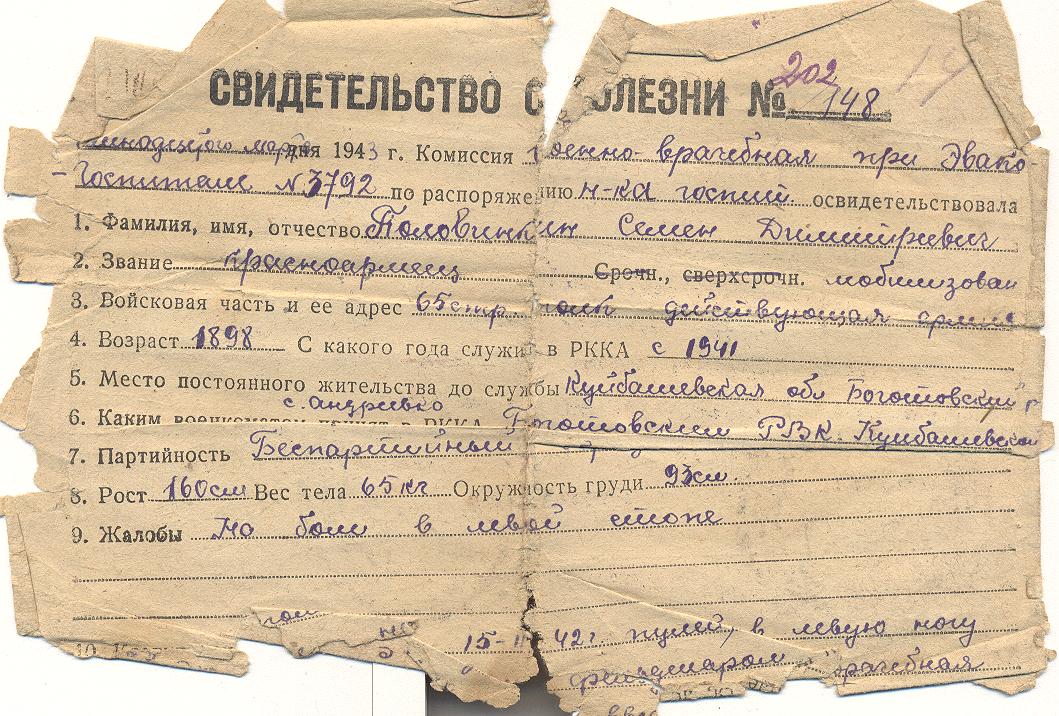 СВИДЕТЕЛЬСТВО О БОЛЕЗНИ № 202 148 14
дня 1943 г. Комиссия военно-врачебная при Эвако-
Госпитале N 3792 по распоряжению н-ка госпит. освидетельствовала
1. Фамилия, имя, отчество Половинкин Семен Димитриевич
2. Звание красноармеец Срочн., сверхсрочн. мобилизован
3. Войсковая часть и ее адрес 65 стр. полк действующая армия
4. Возраст 1898 С какого года служит в РККА с 1941
5. Место постоянного жительства до службы Куйбашевская обл Богатовский р
с. андреевко
6. Каким военкоматом принят в РККА Богатовским РВК Куйбашевской
7. Партийность Беспартийный
8. Рост 160см Вес тела 65 кг Окружность груди 93см.
9. Жалобы На боли в левой стопе
15-II-42г пулей, в левую ногу
врачебная